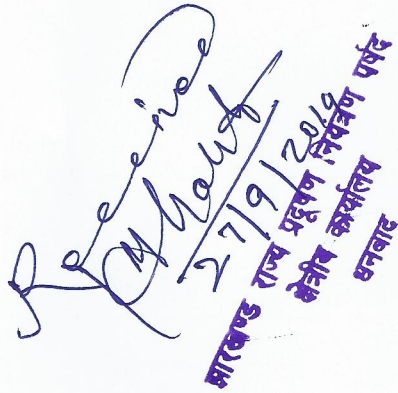 Received
27/9/2019
झारखण्ड राज्य प्रदूषण नियंत्रण पर्षद
क्षेत्रीय कार्यालय
धनबाद